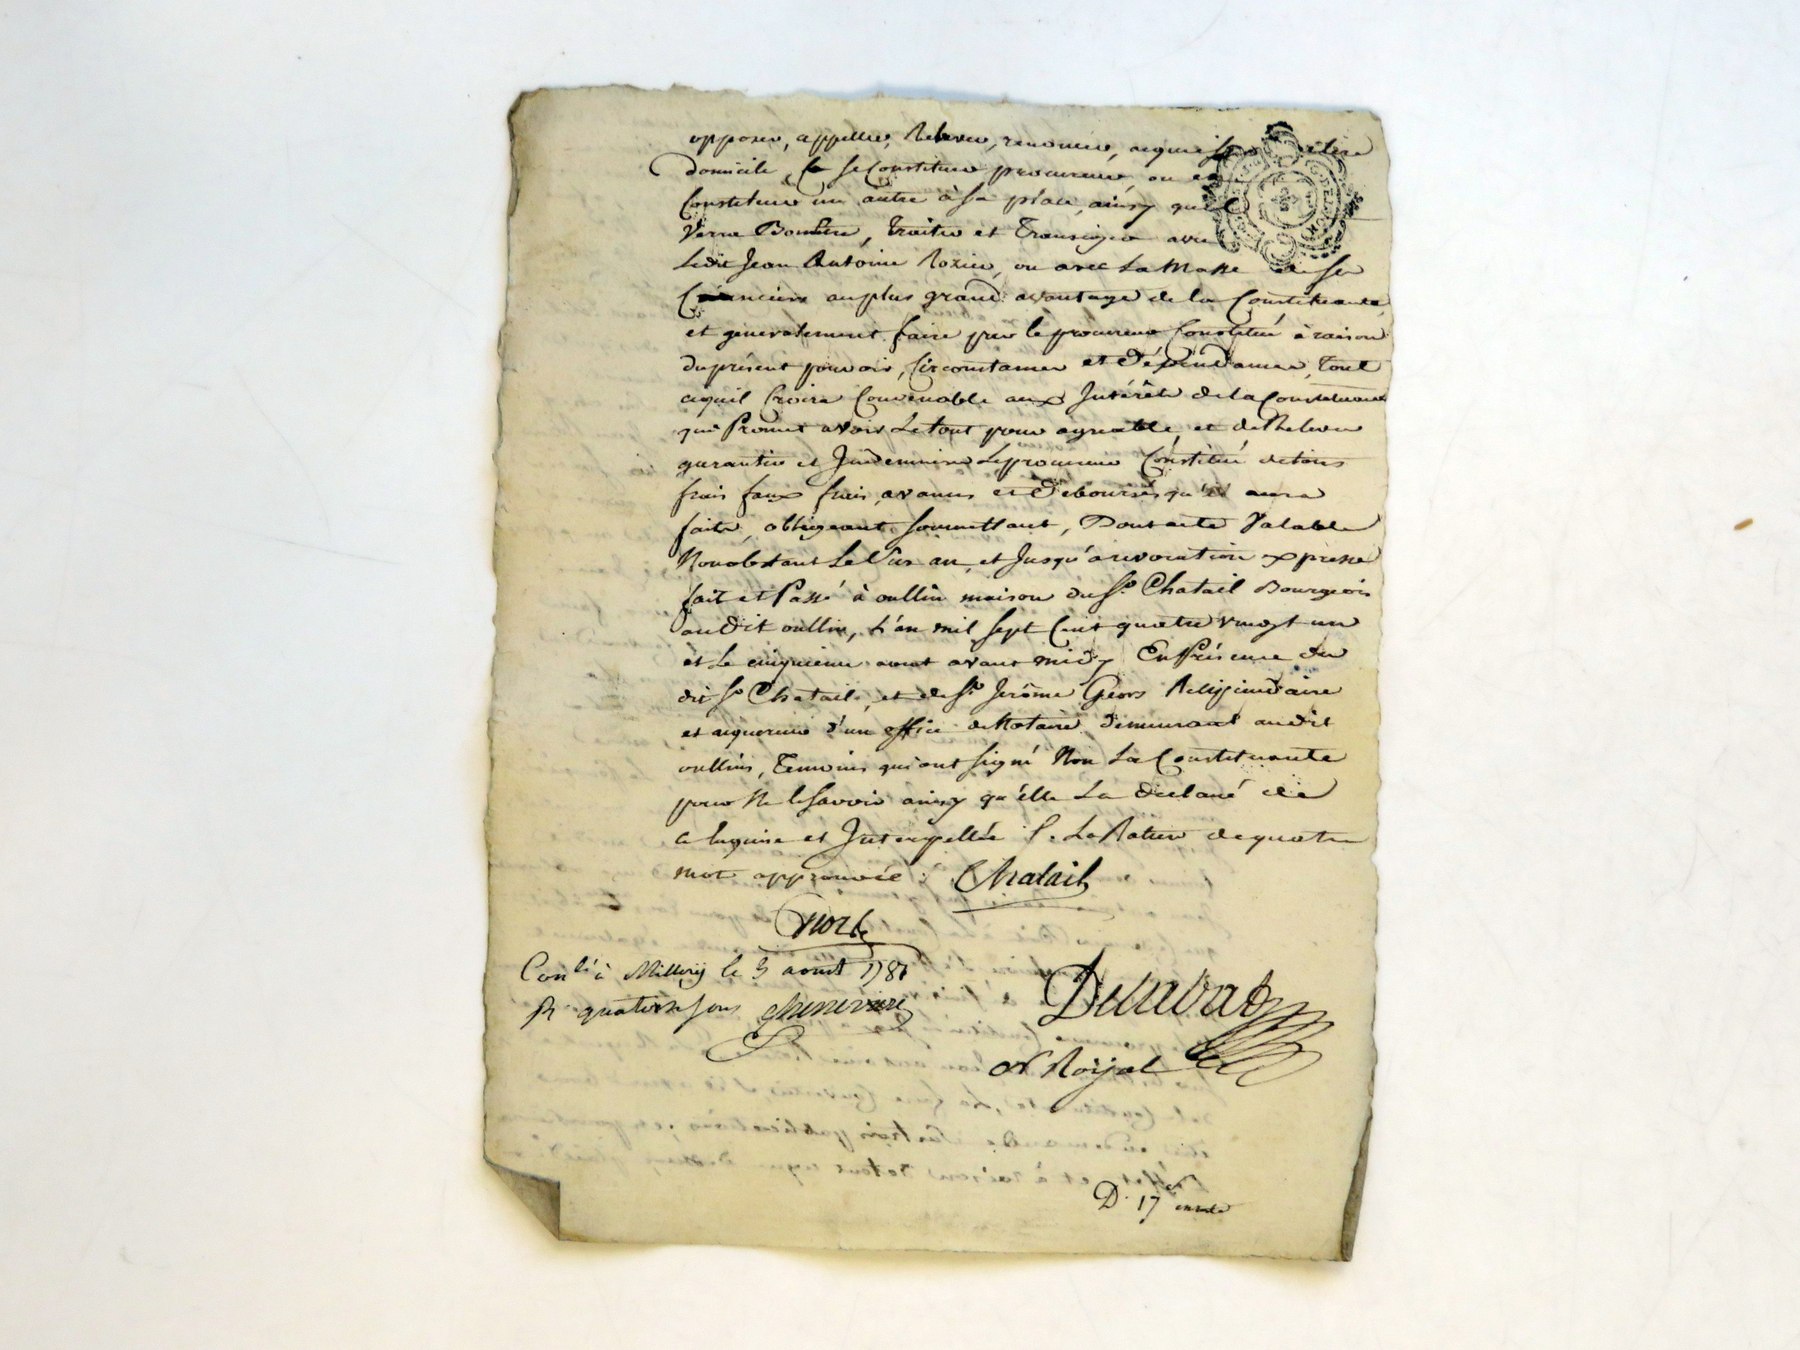 opposer, appeller, Relever, renoncer, acquiescer elire
domicile, se Constituer procureur ou en
Constituer un autre à sa place, ainsy quil
Verra Bon Etre, Traiter et Transiger avec
Ledit Jean Antoine Rozier, ou avec La Masse de ses
Créanciers au plus grand avantage de la Constituante,
et generalement faire par le procureur Constitué à raison
du présent pouvoir, Circonstances et Dépendances, tout
cequil Croira Convenable aux Intérêts de la Constituante
qui Promet avoir Le tout pour agreable, et de Relever
garantir et Indemniser Le procureur Constitué de tous
frais faux frais, avances et Deboursés qu'il aura
faits, obligeant soumettant, Dont acte Valable
Nonobstant Le Sur an, et Jusqu'à revocation expresse
fait et Passé à oullin maison du Sr. Chatail Bourgeois
audit oullin, L'an mil sept Cent quatre vingt un
et Le cinquieme aout avant midy En Présence du
dit Sr Chatail, et de Sr. Jerôme Geors
et acquereur d'un office de Notaire demeurant audit
oullins, Temoins qui ont signé Non La Constituante
pour Ne le savoir ainsy qu'elle La declaré de ce
Enquise et Interpellée La Rature de quatre
mot approuvée. Chatail
Con.lé à Millery le 5 aout 1781
R quatorze sous Chenevière
Delaval
Nre Royal
D. 17